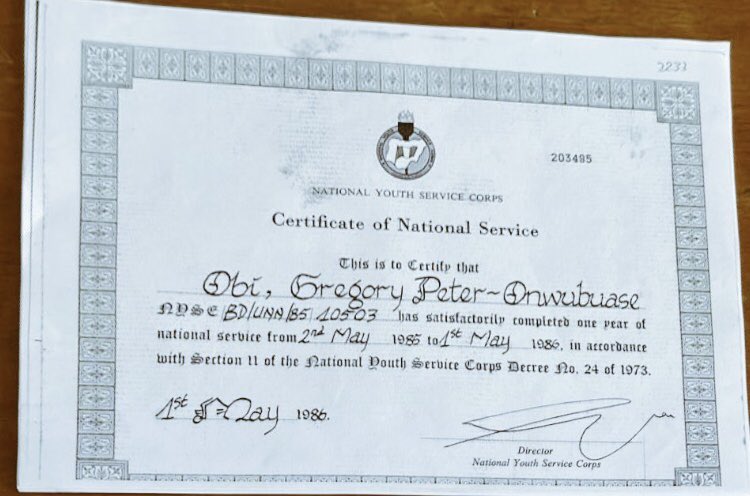 2233
203485
NATIONAL YOUTH SERVICE CORPS
Certificate of National Service
This is to Certify that
Obi, Gregory Peter-Onwubuase
NYSC BD/UNN/85/10503 has satisfactorily completed one year of
national service from 2nd May 1985 to 1st May 1986, in accordance
with Section 11 of the National Youth Service Corps Decree No. 24 of 1973.
1st May 1986.
Director
National Youth Service Corps